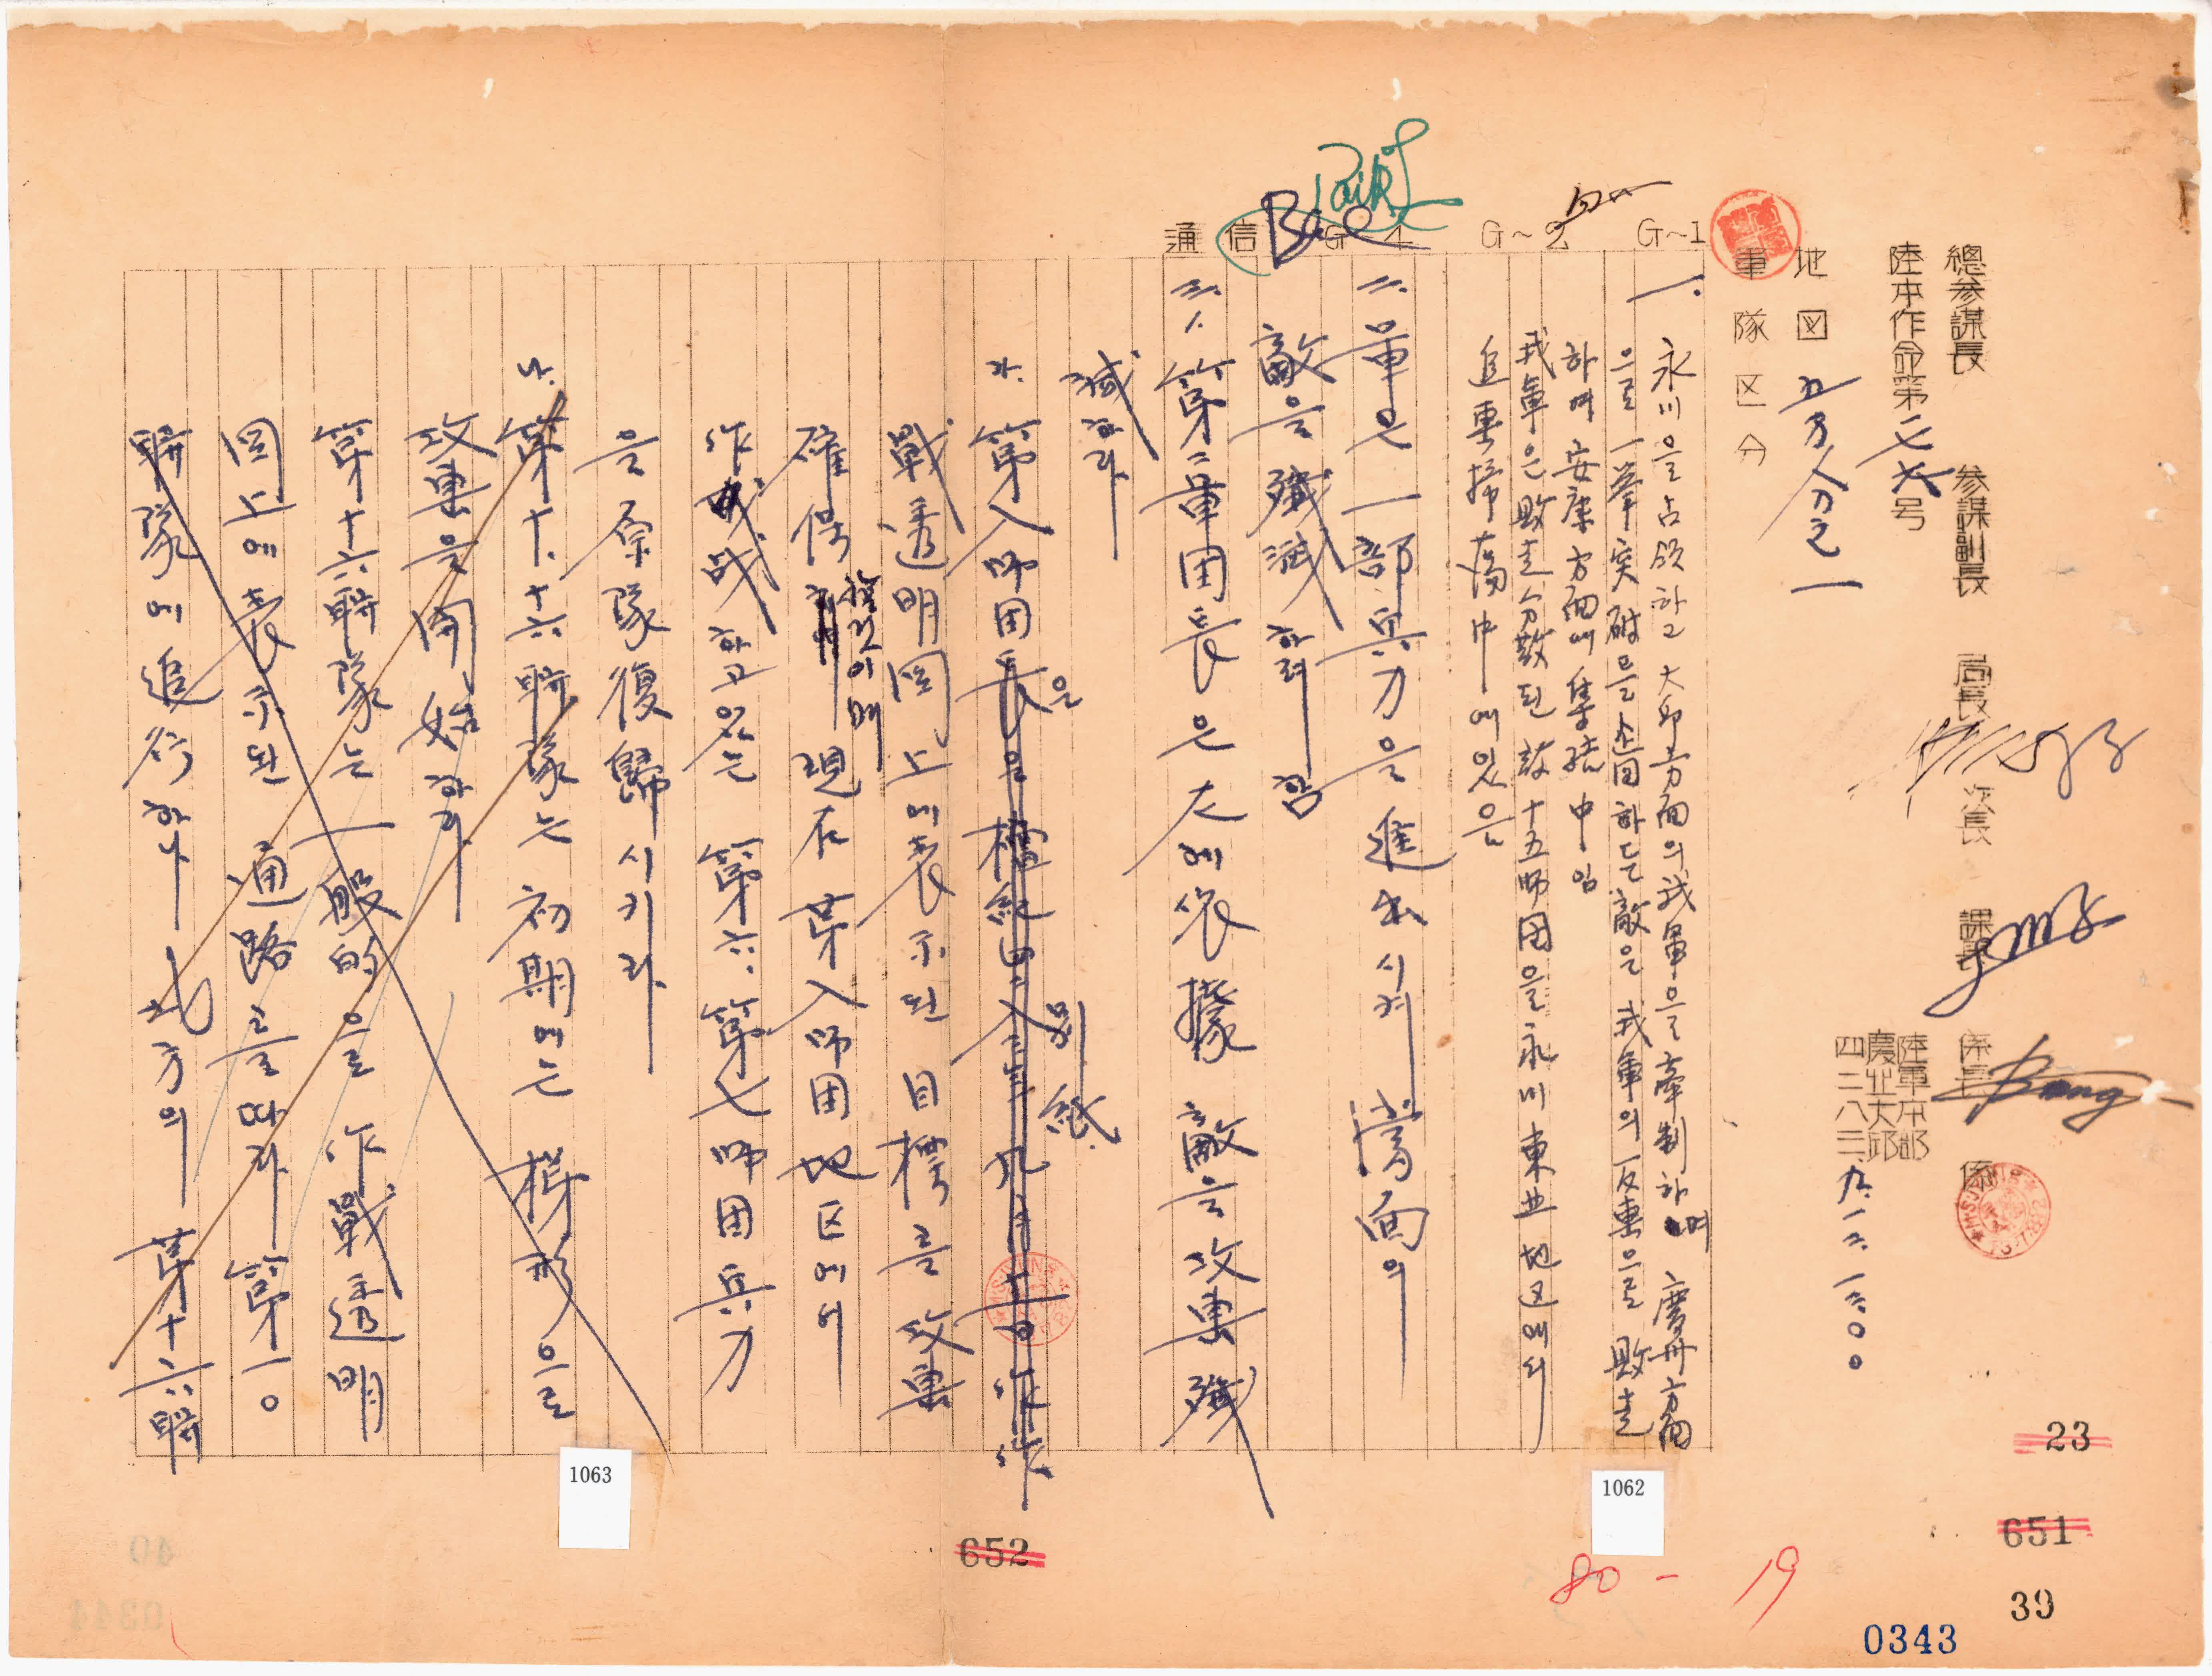 總參謀長 參謀副長 局長 次長 課長 係長 係
陸本作命第一七六号
陸軍本部
慶北大邱
四二八三、九、一二、一二〇〇
地図 五万分之一
軍隊区分
G~1
G~2
G~4
通信
Paik
一. 永川을 占領하고 大邱方面의 我軍을 牽制하며 慶州方面
으로 一擧突破를 企図하든 敵은 我軍의 反擊으로 敗走
하여 安康方面에 集結中임
我軍은 敗走分散된 敵十五師団을 永川東北地区에서
追擊掃蕩中에 있음
二. 軍은 一部兵力을 進出시켜 當面의
敵을 殲滅하려 함
三. 1. 第二軍団長은 左에 依據 敵을 攻擊 殲
滅하라
가. 第八師団長은 檀紀四二八三年九月十一日作 作
은 別紙
戰透明図上에 表示된 目標를 攻擊
確保할것이며 現在 第八師団地区에서
作戰하고 있는 第六. 第七師団兵力
을 原隊復歸시키라
나. 第十. 十六聯隊는 初期에는 梯形으로
攻擊을 開始하라
第十六聯隊는 一般的으로 作戰透明
図上에 表示된 通路를 따라 第一〇
聯隊에 追行하나 北方의 第十六聯
1062
1063
23
651
652
39
0343
80-19